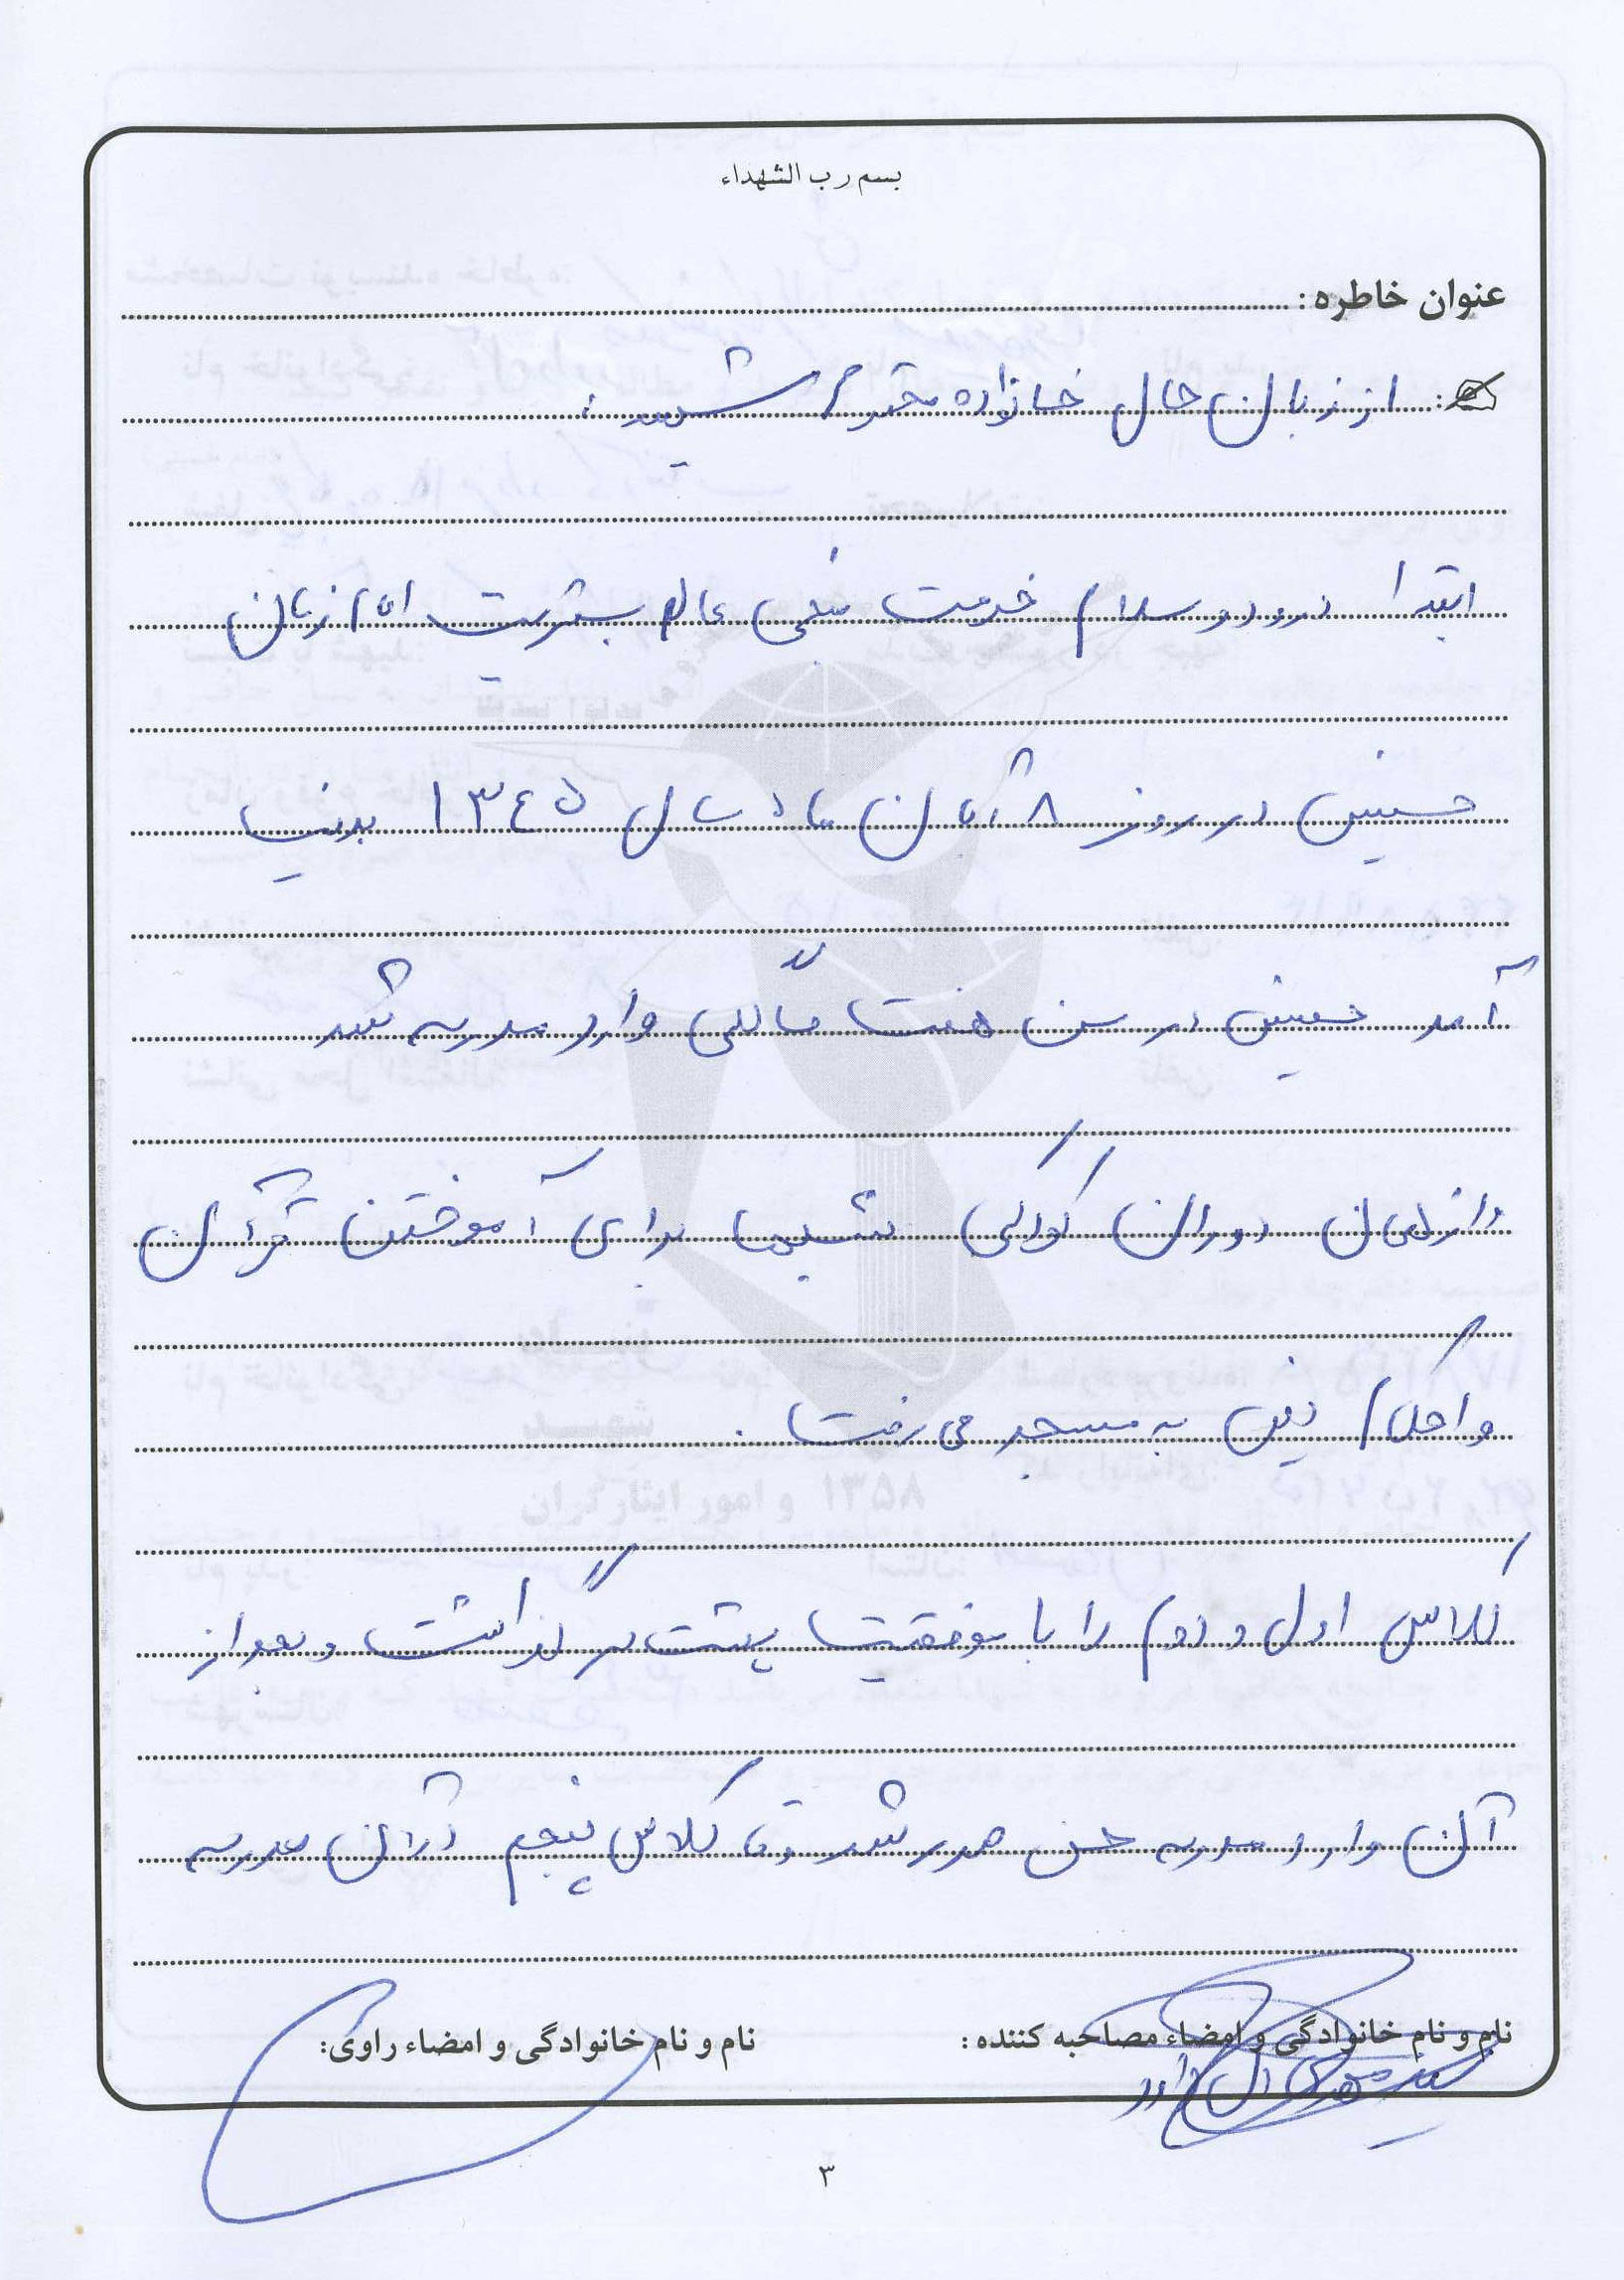 بسم رب الشهداء
عنوان خاطره:
از زبان حال خانواده محترم شهید:
ابتدا درود و سلام خدمت منجی عالم بشریت امام زمان
حسین در روز ۸ آبان ماه سال ۱۳٤۵ بدنیا
آمد حسین در سن هفت سالگی وارد مدرسه شد
و از همان دوران کودکی شبها برای آموختن قرآن
و احکام دین به مسجد می رفت.
کلاس اول و دوم را با موفقیت پشت سر گذاشت و بعد از
آن وارد مدرسه حسن صدر شد و تا کلاس پنجم در آن مدرسه
نام و نام خانوادگی و امضاء مصاحبه کننده:
نام و نام خانوادگی و امضاء راوی:
۳